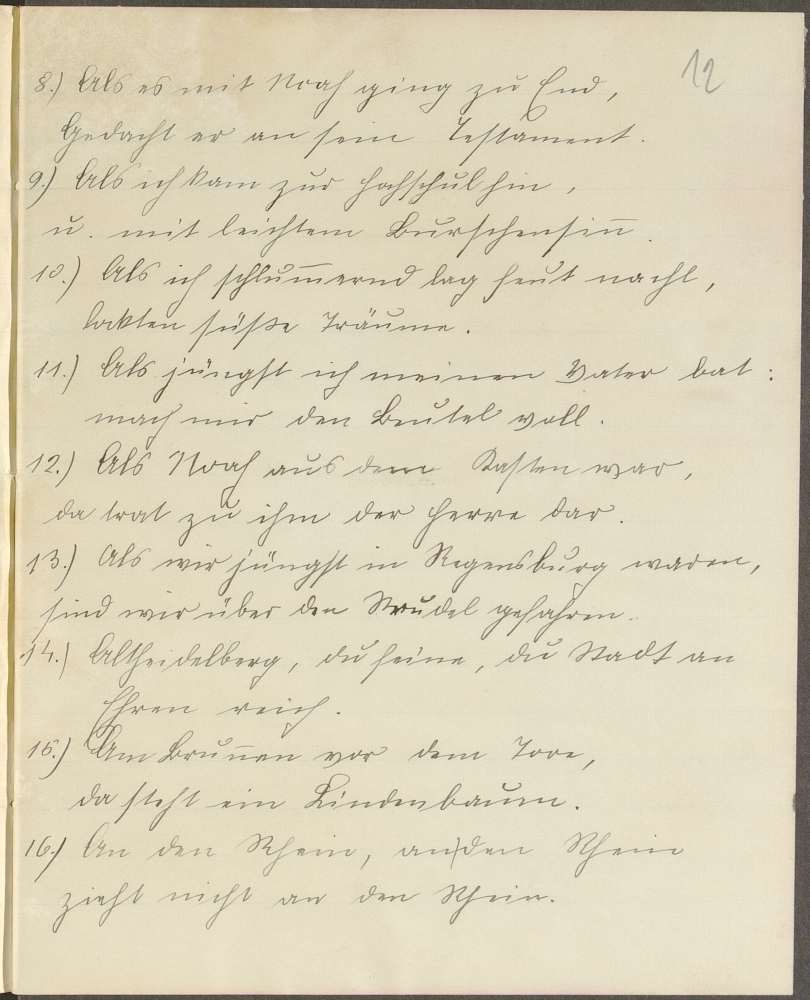 12
8.) Als es mit Noah ging zu End,
Gedacht er an sein Testament.
9.) Als ich kam zur Hochschul hin,
u. mit leichtem Burschensin̅
10.) Als ich schlum̅ernd lag heut nacht,
lockten süße Träume.
11.) Als jüngst ich meinen Vater bat:
mach mir den Beutel voll.
12.) Als Noah aus dem Kasten war,
da trat zu ihm der Herre dar.
13.) Als wir jüngst in Regensburg waren,
sind wir über den Strudel gefahren.
14.) Altheidelberg, du feine, du Stadt an
Ehren reich.
15.) Am Brun̅en vor dem Tore,
da steht ein Lindenbaum.
16.) An den Rhein, an den Rhein
zieht nicht an den Rhein.